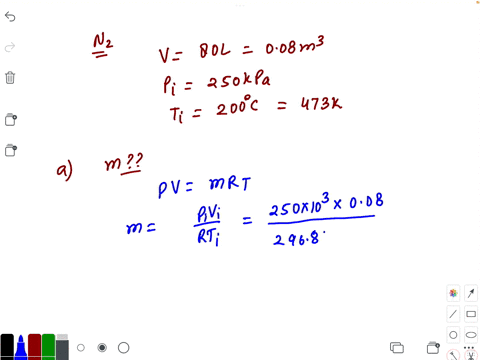 N₂
V = 80L = 0.08m³
Pᵢ = 250kPa
Tᵢ = 200°C = 473k
a) m??
PV = mRT
m = PᵢVᵢ / RTᵢ = 250×10³ × 0.08 / 296.8